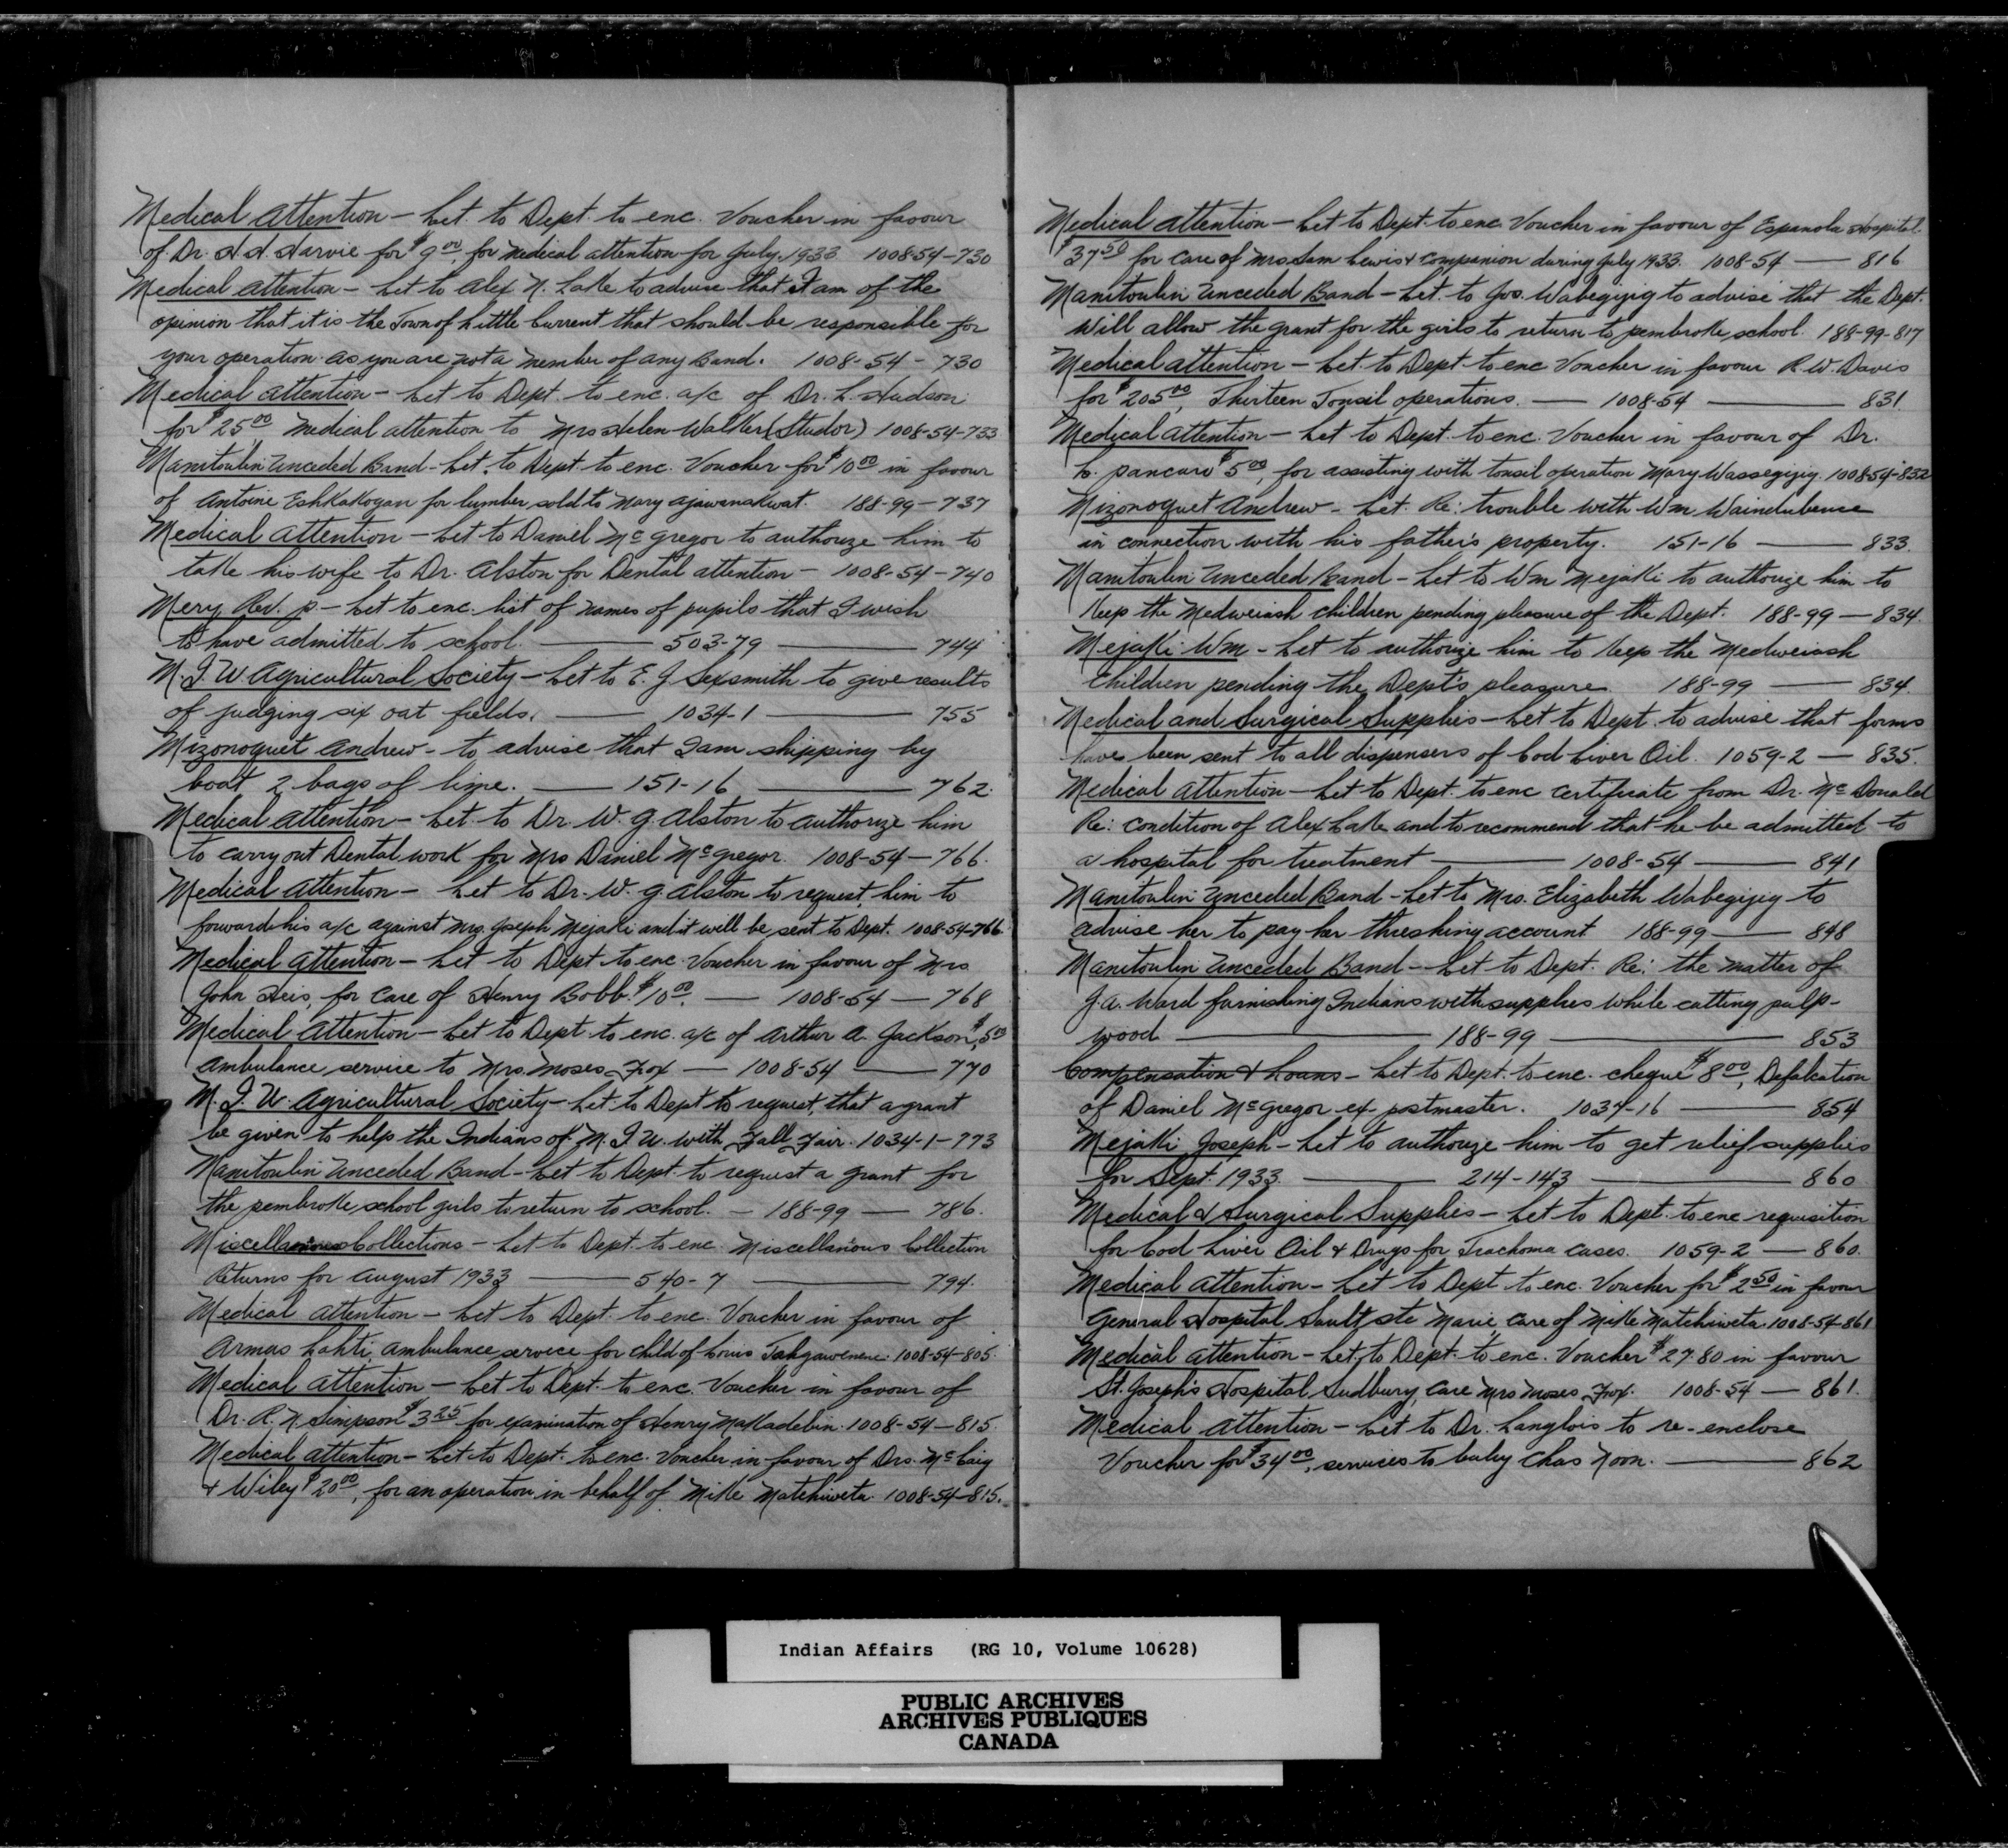 Medical Attention - Let. to Dept. to enc. Voucher in favour
of Dr. H.H. Harvie for $9.00, for medical attention for July 1933 1008-54-730
Medical Attention - Let to Alex N. Lake to advise that I am of the
opinion that it is the Town of Little Current that should be responsible for
your operation as you are not a member of any Band. 1008-54-730
Medical Attention - Let to Dept. to enc. a/c of Dr. L. Hudson
for $25.00, medical attention to Mrs Helen Walker (Studor) 1008-54-733
Manitoulin Unceded Band - Let. to Dept to enc. Voucher for $10.00 in favour
of Antoine Eshkakogan for lumber sold to Mary Ajawenakwat. 188-99-737
Medical Attention - Let to Daniel McGregor to authorize him to
take his wife to Dr. Alston for Dental attention - 1008-54-740
Mery Rev. P - Let to enc. list of names of pupils that I wish
to have admitted to school. 503-79 744
M.I.U Agricultural Society - Let to E.J Sexsmith to give results
of judging six oat fields. 1034-1 755
Mizonoquet Andrew - to advise that I am shipping by
boat 2 bags of lime. 151-16 762.
Medical Attention - Let. to Dr. W.G. Alston to authorize him
to carry out Dental work for Mrs Daniel McGregor. 1008-54-766.
Medical Attention - Let to Dr. W.G. Alston to request him to
forward his a/c against Mrs. Joseph Mejaki and it will be sent to Dept. 1008-54-766
Medical Attention - Let to Dept. to enc. Voucher in favour of Mrs
John Heis, for care of Henry Bobb. $10.00, - 1008-54 - 768
Medical Attention - Let to Dept. to enc. a/c of Arthur A. Jackson, $5.00
ambulance service to Mrs. Moses Fox - 1008-54 - 770
M.I.U. Agricultural Society - Let to Dept to request, that a grant
be given to help the Indians of M.I.U. with Fall Fair. 1034-1-773
Manitoulin Unceded Band - Let to Dept. to request a grant for
the pembroke school girls to return to school. - 188-99 - 786.
Miscellaneous Collections - Let to Dept. to enc. Miscellanious Collection
Returns for August 1933 540-7 794.
Medical Attention - Let to Dept. to enc. Voucher in favour of
Armas Lahti, ambulance service for child of Louis 1008-54-805.
Medical Attention - Let to Dept. to enc. Voucher in favour of
Dr. R.N. Simpson $3.25 for examination of Henry Makadebin. 1008-54-815.
Medical Attention - Let to Dept. to enc. Voucher in favour of Drs. McCaig
& Wiley $20.00, for an operation in behalf of Mike Matchiweta. 1008-54-815.
Medical Attention - Let to Dept. to enc. Voucher in favour of Espanola Hospital.
$37.50 for care of Mrs Sam Lewis & companion during July 1933. 1008-54 - 816
Manitoulin Unceded Band - Let. to Jos. Wabegijig to advise that the Dept.
will allow the grant for the girls to return to pembroke school. 188-99-817
Medical Attention - Let to Dept to enc Voucher in favour R.W. Davis
for $205.00, Thirteen Tonsil operations. - 1008-54 - 831
Medical Attention - Let to Dept. to enc. Voucher in favour of Dr.
$5.00, for assisting with tonsil operation Mary Wassegijig. 1008-54-832
Mizonoquet Andrew - Let. Re: trouble with Wm Waindubence
in connection with his father's property. 151-16 833.
Manitoulin Unceded Band - Let to Wm Mejaki to authorize him to
keep the Medweiash children pending pleasure of the Dept. 188-99 - 834.
Mejaki Wm - Let to authorize him to keep the Medweiash
children pending the Dept's pleasure. 188-99 - 834.
Medical and Surgical Supplies - Let to Dept. to advise that forms
have been sent to all dispensers of Cod Liver Oil. 1059-2 - 835.
Medical Attention - Let to Dept. to enc certificate from Dr. McDonald
Re: condition of Alex Lake and to recommend that he be admitted to
a hospital for treatment 1008-54 841
Manitoulin Unceded Band - Let to Mrs. Elizabeth Wabegijig to
advise her to pay her threshing account 188-99 - 848
Manitoulin Unceded Band - Let to Dept. Re: the matter of
J.A. Ward furnishing Indians with supplies while cutting pulp-
wood 188-99 853
Compensation & Loans - Let to Dept. to enc. cheque $8.00, Defalcation
of Daniel McGregor ex postmaster. 1034-16 854
Mejaki Joseph - Let to authorize him to get relief supplies
for Sept. 1933. 214-143 860
Medical & Surgical Supplies - Let to Dept. to enc requisition
for Cod Liver Oil & Drugs for Trachoma cases. 1059-2 - 860.
Medical Attention - Let to Dept to enc. Voucher for $2.50 in favour
General Hospital Sault Ste Marie, care of Mike Matchiweta. 1008-54-861
Medical Attention - Let. to Dept. to enc. Voucher $27.80 in favour
St. Joseph's Hospital, Sudbury, care Mrs Moses Fox. 1008-54 - 861.
Medical Attention - Let to Dr. Langlois to re-enclose
Voucher for $34.00, services to baby Chas Noon. 862
Indian Affairs (RG 10, Volume 10628)
PUBLIC ARCHIVES
ARCHIVES PUBLIQUES
CANADA